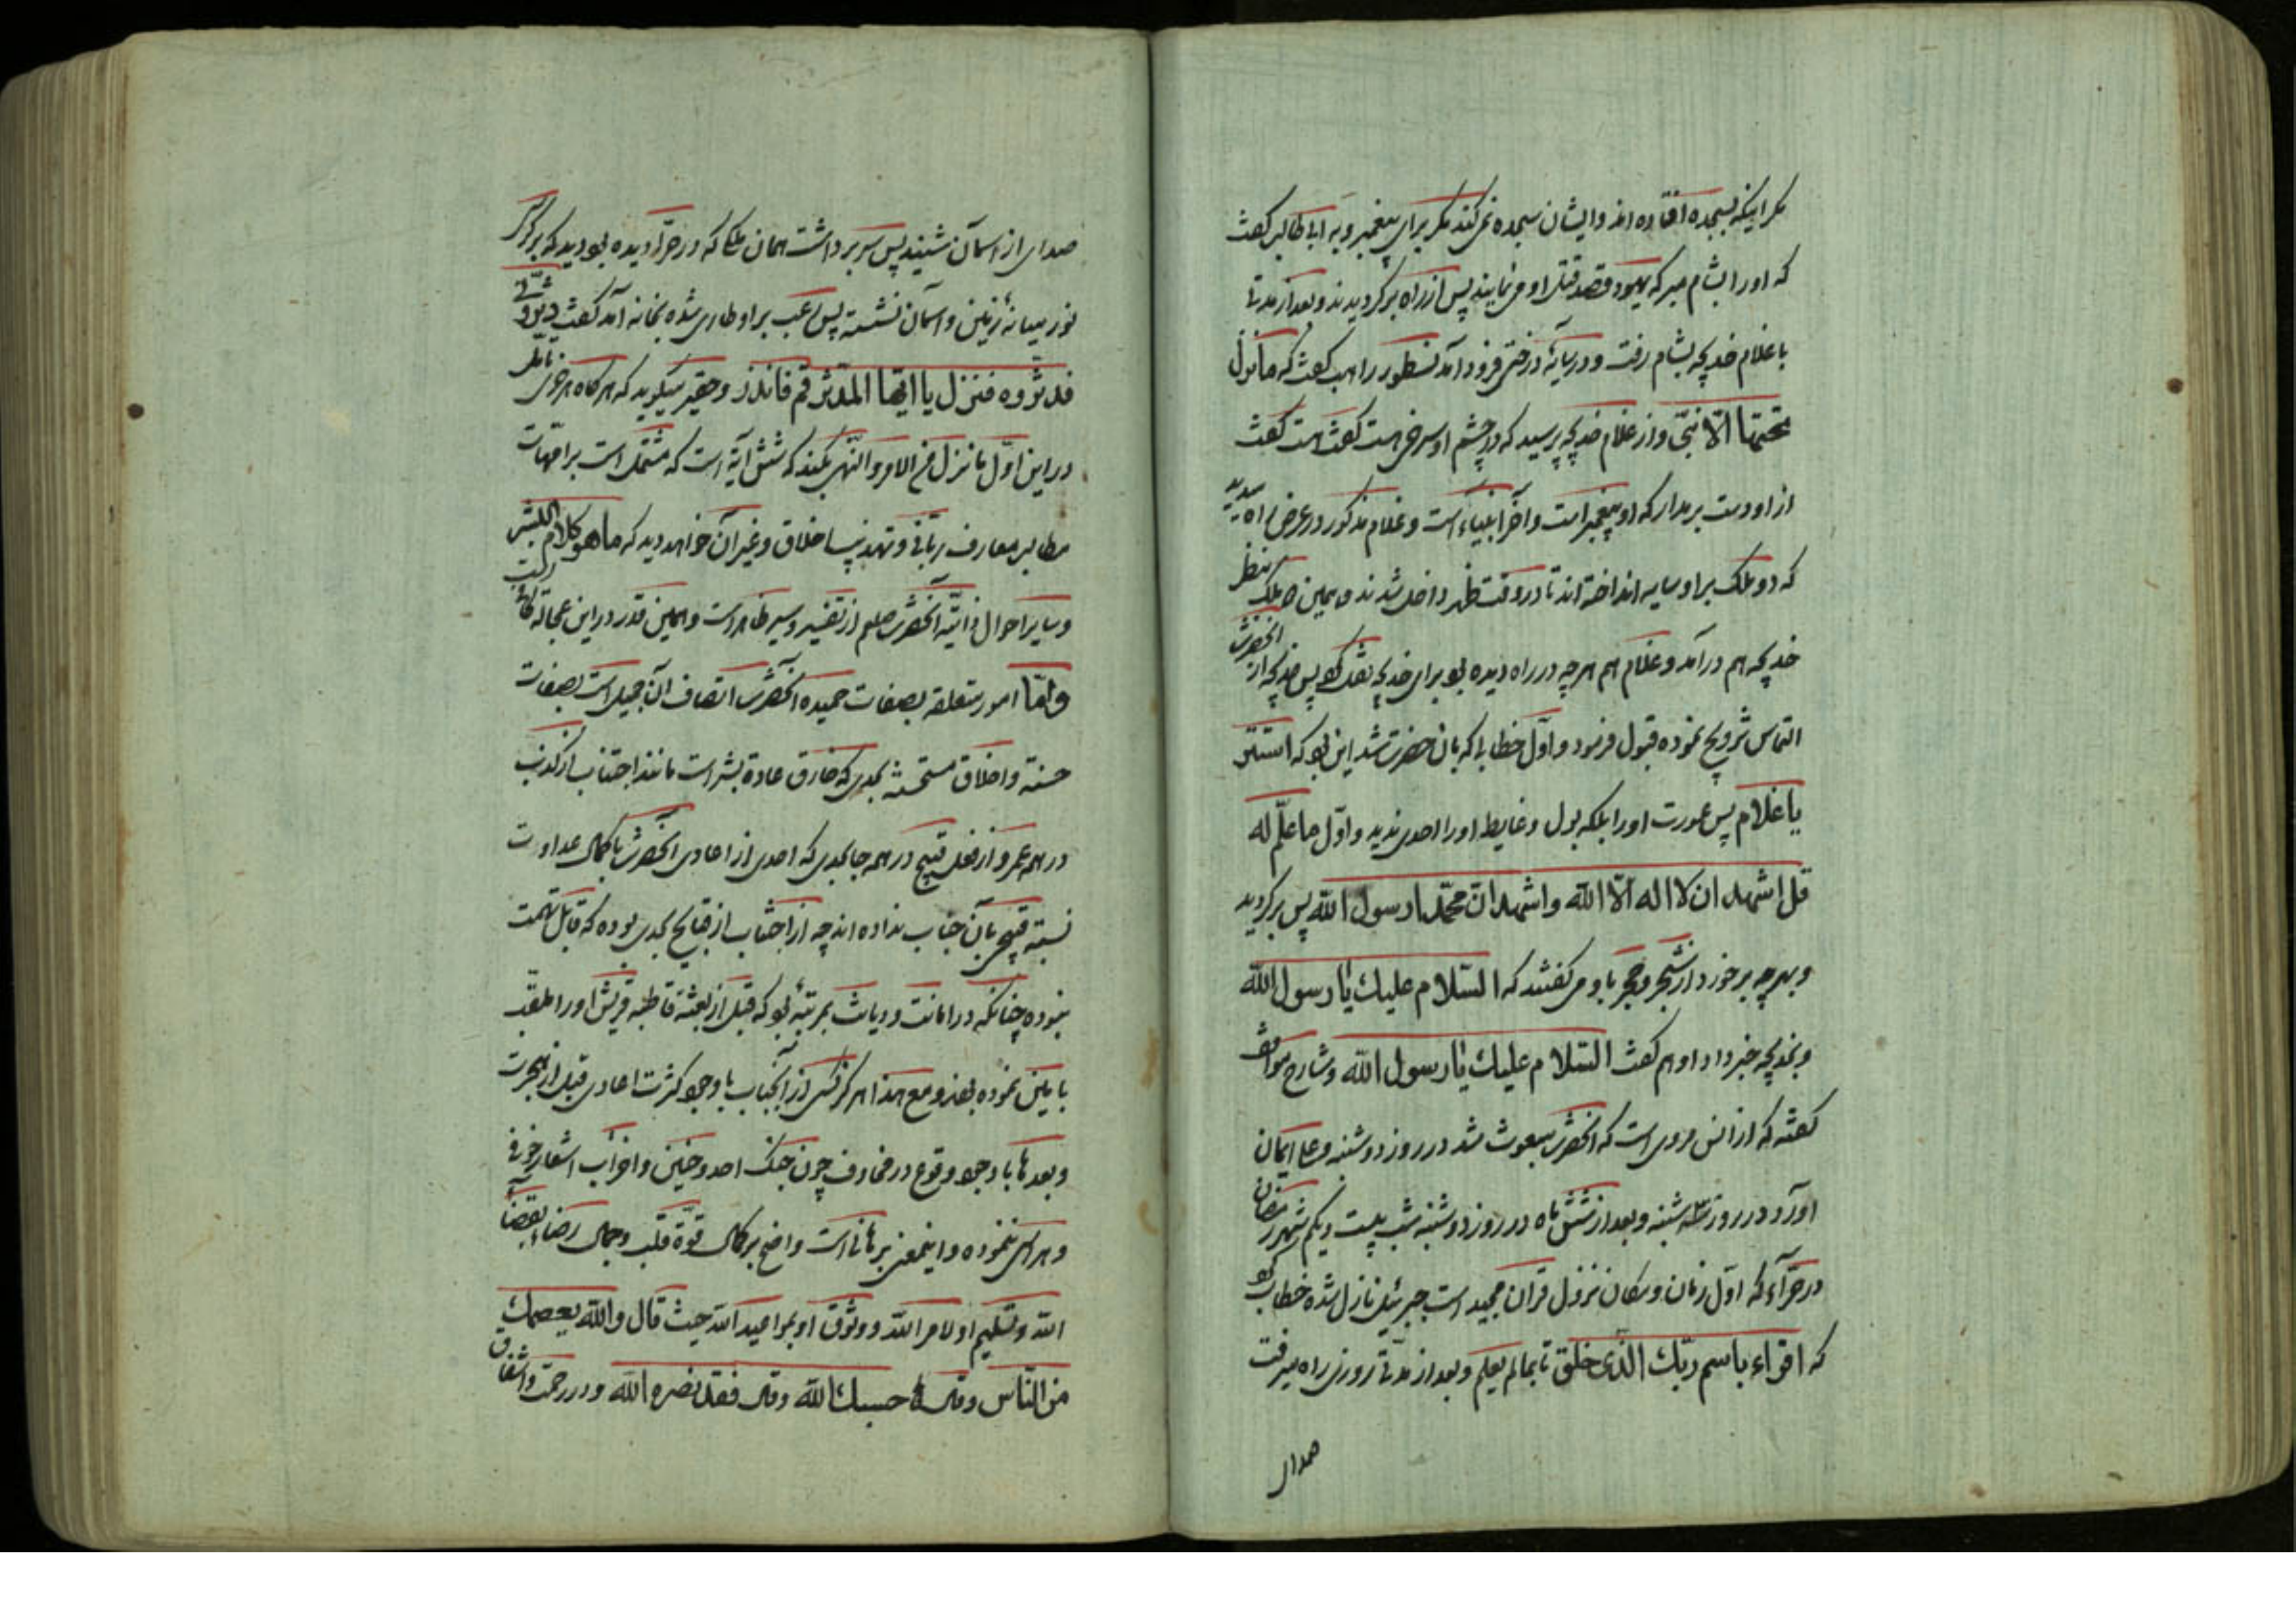 مکر اینکه بسجده افتاده اند و ایشان سجده نمی کنند مکر برای پیغمبر و به ابا طالب کفت
که او را بشام مبر که یهود قصد قتل او می نمایند پس از راه بر کردیدند و بعد از مدتها
با غلام خدیجه بشام رفت و در سایهٔ درختی فرود آمد نسطور راهب کفت که ما نزل
تحتها الّا نبیّ و از غلام خدیجه پرسید که در چشم او سرخی هست کفت هست کفت
از او دست بر مدار که او پیغمبر است و آخر انبیاء است و غلام مذکور در عرض راه میدید
که دو ملک بر او سایه انداخته اند تا در وقت ظهر داخل شدند و بهمین ملک بنظر
خدیجه هم در آمد و غلام هم هر چه در راه دیده بود برای خدیجه نقل کرد پس خدیجه از آنحضرت
التماس تزویج نموده قبول فرمود و اوّل خطابی که بان حضرت شد این بود که استتر
یا غلام پس عورت او را بلکه بول و غایط او را احدی ندید و اوّل ما علّم له
قل اشهد ان لا اله الّا اللّه و اشهد انّ محمّدا رسول اللّه پس بر کردید
و بهر چه بر خورد از شجر و حجر باو می کفتند که السّلام علیك یا رسول اللّه
و بخدیجه خبر داد او هم کفت السّلام علیك یا رسول اللّه و شارح مواقف
کفته که از انس مروی است که آنحضرت مبعوث شد در روز دوشنبه و علی ایمان
آورد در روز سه شنبه و بعد از شش ماه در روز دوشنبه شب بیست و یکم شهر رمضان
در حرّاء که اوّل زمان و مکان نزول قران مجید است جبرئیل نازل شده خطاب کرد
که اقراء باسم ربّك الّذی خلق تا بما لم یعلم و بعد از مدتی روزی راه میرفت
صدای
صدای از آسمان شنید پس سر برداشت همان ملکی که در حرّا دیده بود دید که بر کرسی
نور میانهٔ زمین و آسمان نشسته پس رعب بر او طاری شده بخانه آمد کفت دثّرونی
فدثروه فنزل یا ایّها المدّثر قم فانذر و حقیر میکوید که هر کاه هر عربی تامل
در این اوّل ما نزل فی الامر و النّهی بکند که شش آیة است که مشتمل است بر امّهات
مطالب معارف ربّانی و تهذیب اخلاق و غیر آن خواهد دید که ما هو کلام البشر
و سایر احوال ذاتیّه آنحضرت صلعم از تفسیر و سیر ظاهر است و همین قدر در این عجاله کافی است
و امّا امور متعلقه بصفات حمیده آنحضرت اتصاف آن جمیل است بصفات
حسنة و اخلاق مستحسنه بحدی که خارق عادة بشر است مانند اجتناب از کذب
در همه عمر و از فعل قبیح در همه جا بحدی که احدی از اعادی آنحضرت با کمال عداوت
نسبة قبیحی بآن جناب نداده اند چه از اجتناب از قبایح بحدی بوده که قابل تهمت
نبوده چنانکه در امانت و دیانت بمرتبهٔ بود که قبل از بعثة قاطبه قریش او را ملقّب
با مین نموده بودند و مع هذا هرکز کسی از آنجناب با وجود کثرت اعادی قبل از هجرت
و بعدها با وجود وقوع در مخاوف چون جنک احد و حنین و احزاب اشعار خوفی
و هراسی ننموده و اینمعنی برهانی است واضح بر کمال قوّة قلب و جمال رضاء بقضاء
اللّه و تسلیم او لامر اللّه و وثوق او بمواعید اللّه حیث قال و اللّه یعصمك
من النّاس و قال حسبك اللّه و قال فقد نصره اللّه و در رحمت و اشفاق